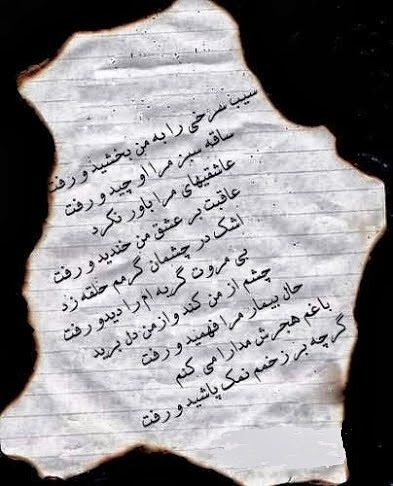 سیب سرخی را به من بخشید و رفت
ساقه سبز مرا او چید و رفت
عاشقیهای مرا باور نکرد
عاقبت بر عشق من خندید و رفت
اشک در چشمان گرمم حلقه زد
بی مروت گریه ام را دید و رفت
چشم از من کند و از من دل برید
حال بیمار مرا فهمید و رفت
با غم هجرش مدارا می کنم
گر چه بر زخمم نمک پاشید و رفت